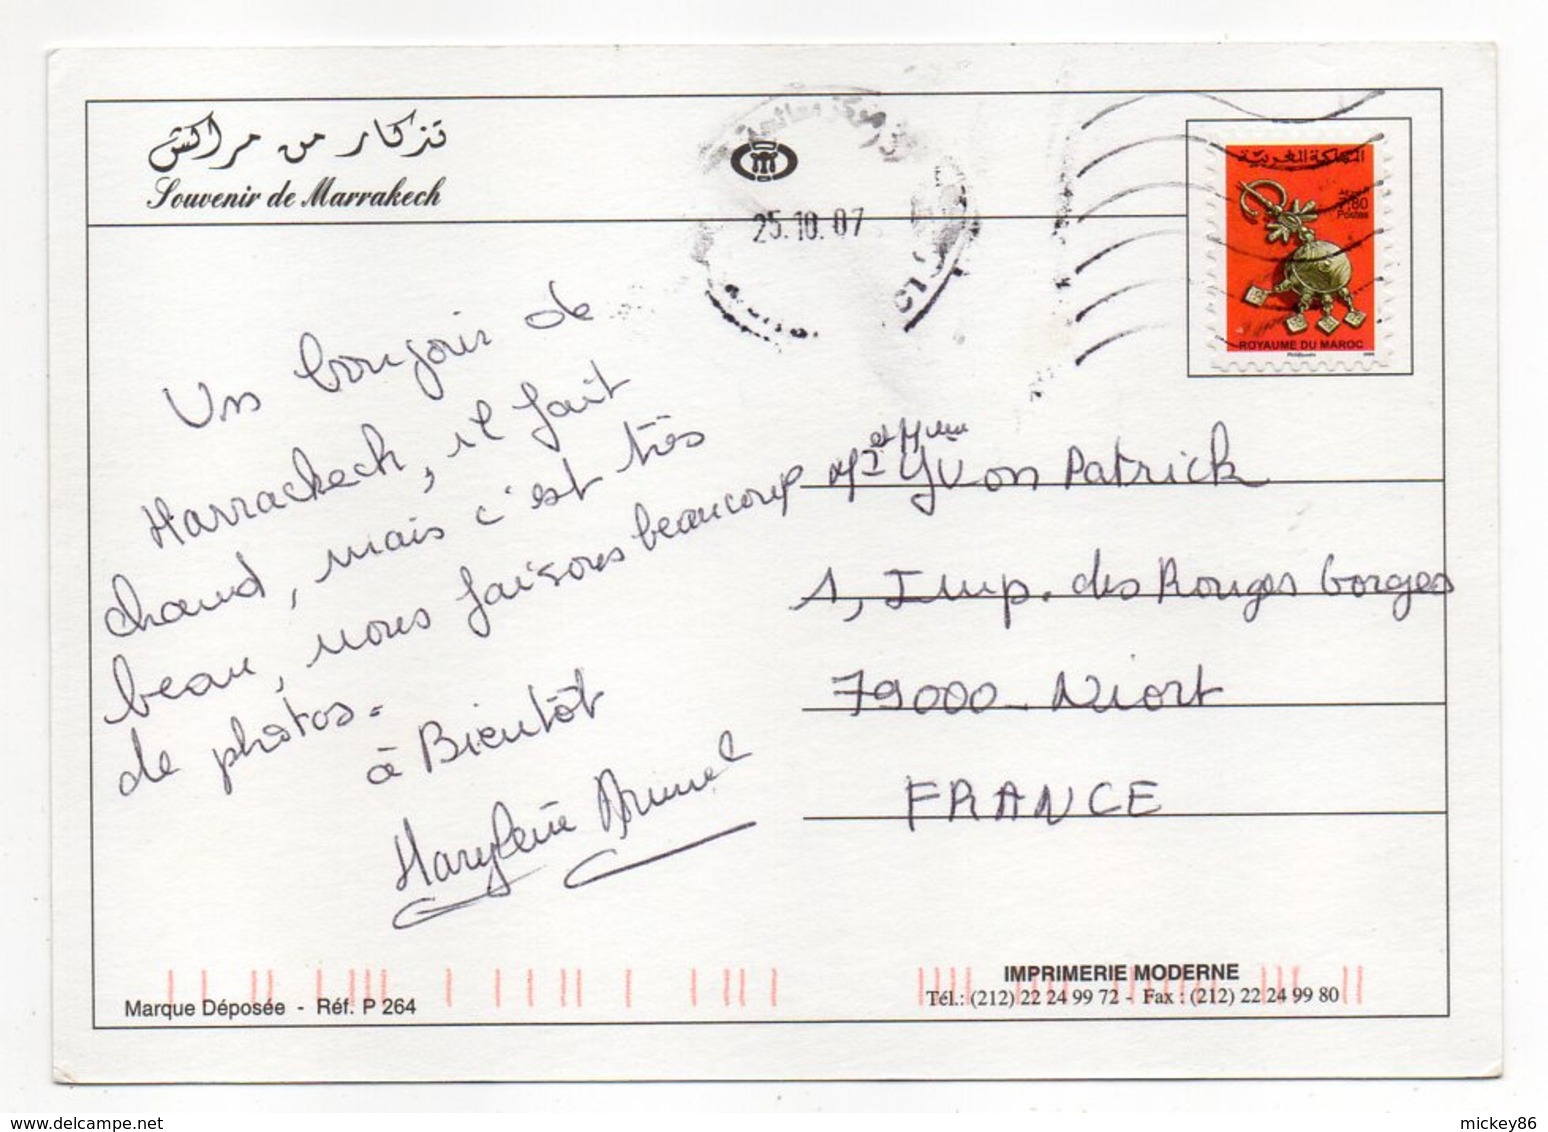 تذكار من مراكش
Souvenir de Marrakech
25.10.07
المملكة المغربية
7.80
Postes
ROYAUME DU MAROC
Un bonjour de
Marrackech, il fait
chaud, mais c'est très
beau, nous faisons beaucoup
de photos.
à Bientôt
et Mme
Mr Yvon Patrick
1, Imp. des Rouges Gorges
79000 - Niort
FRANCE
Marque Déposée - Réf. P 264
IMPRIMERIE MODERNE
Tél.: (212) 22 24 99 72 - Fax : (212) 22 24 99 80
mickey86